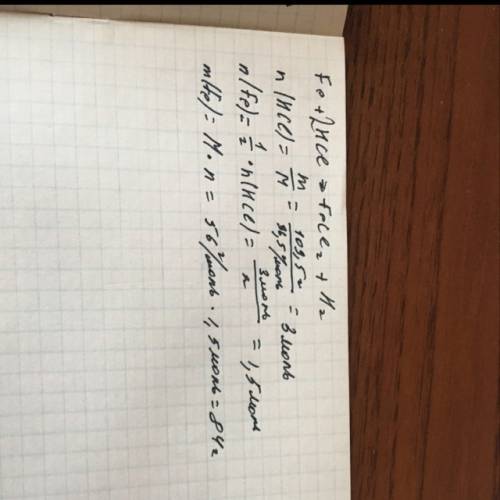 Fe + 2HCl → FeCl₂ + H₂
n(HCl) = m/M = 109,5 г/36,5 г/моль = 3 моль
n(Fe) = 1/2 · n(HCl) = 3 моль/2 = 1,5 моль
m(Fe) = M · n = 56 г/моль · 1,5 моль = 84 г